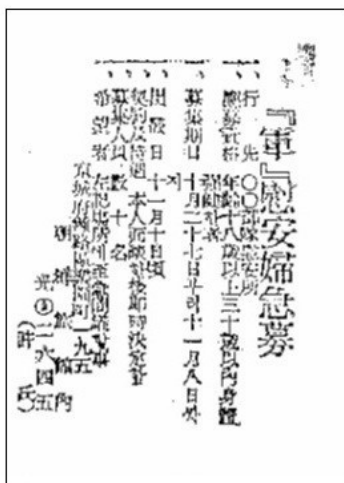 『軍』慰安婦急募
行先 〇〇部隊慰安所
應募資格 年齡十八歲以上三十歲以內身體
强健者
募集期日 十月二十七日부터十一月八日까
지
出發日 十一月十日頃
契約及待遇 本人面談後即時決定
募集人員 數十名
希望者 左記場所至急問議
京城府鍾路區 町一九五
朝鮮旅館內
光③二六四五
(許氏)